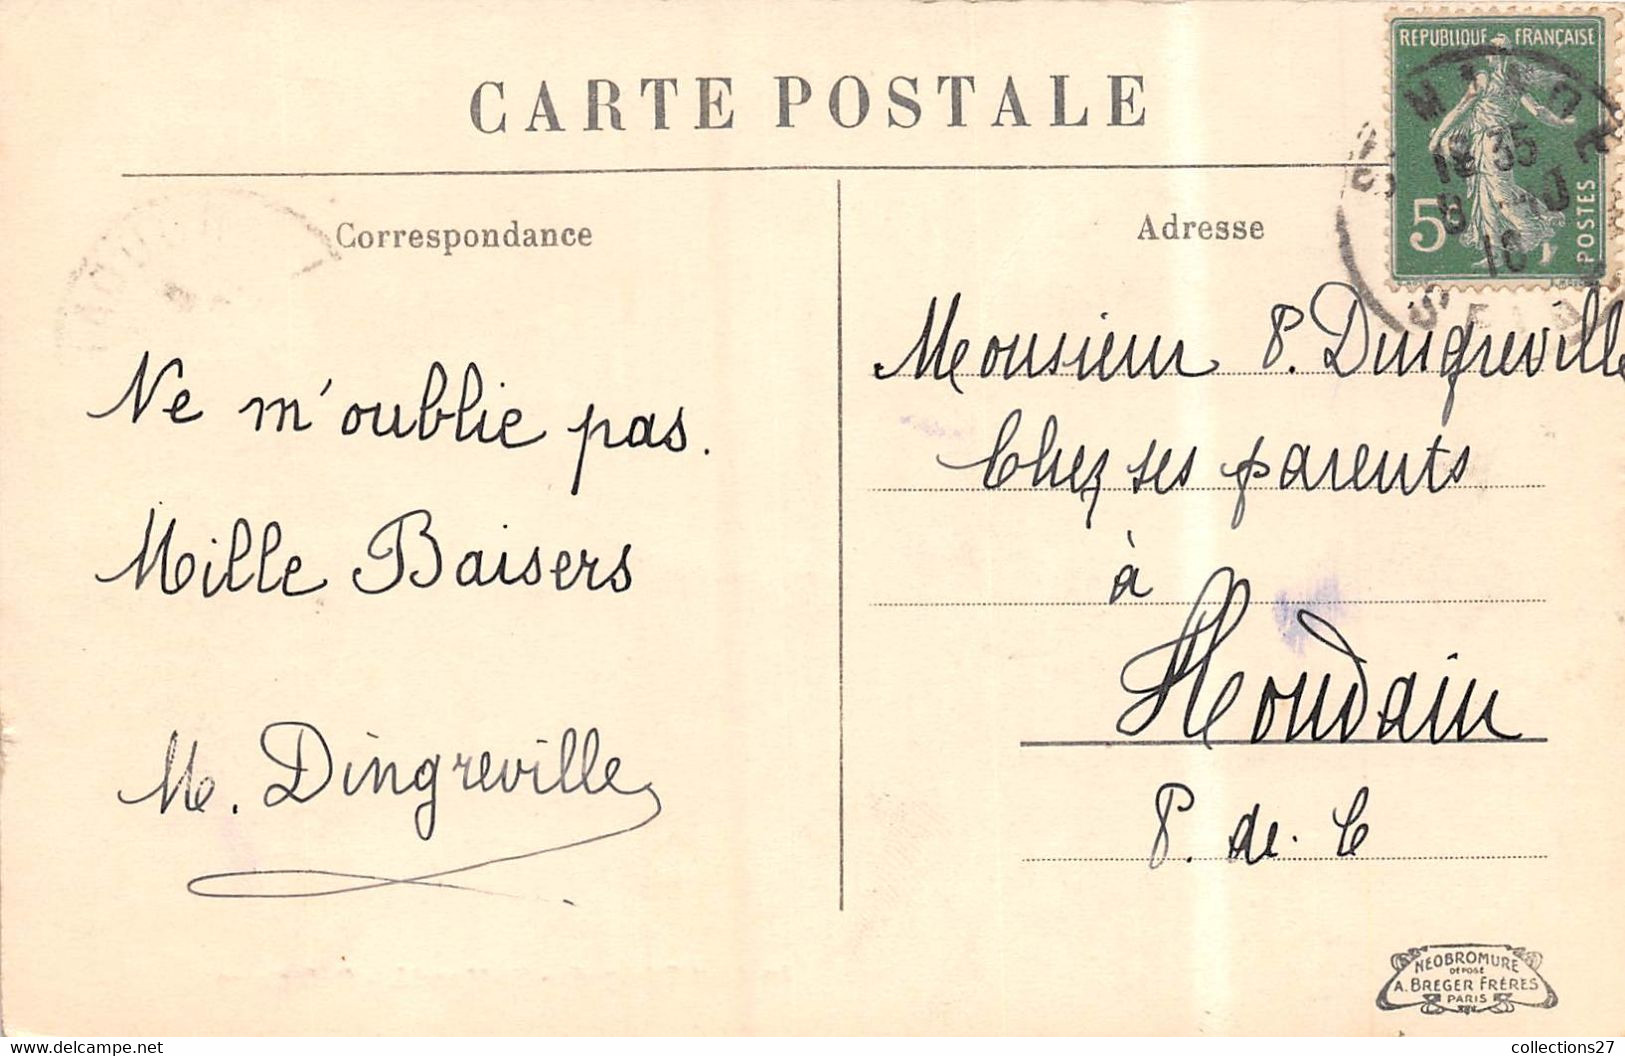 CARTE POSTALE
REPUBLIQUE FRANÇAISE
5c
POSTES
18 35
Correspondance
Adresse
Ne m'oublie pas.
Mille Baisers
M. Dingreville
Monsieur P. Dingreville
Chez ses parents
à
Houdain
P. de. C
NEOBROMURE
DEPOSÉ
A. BREGER FRÈRES
PARIS
collections27